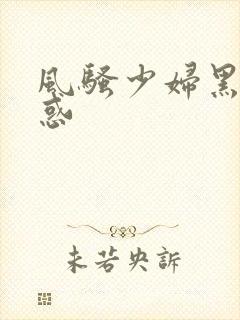 風騷少婦黑
惑
未若央訴